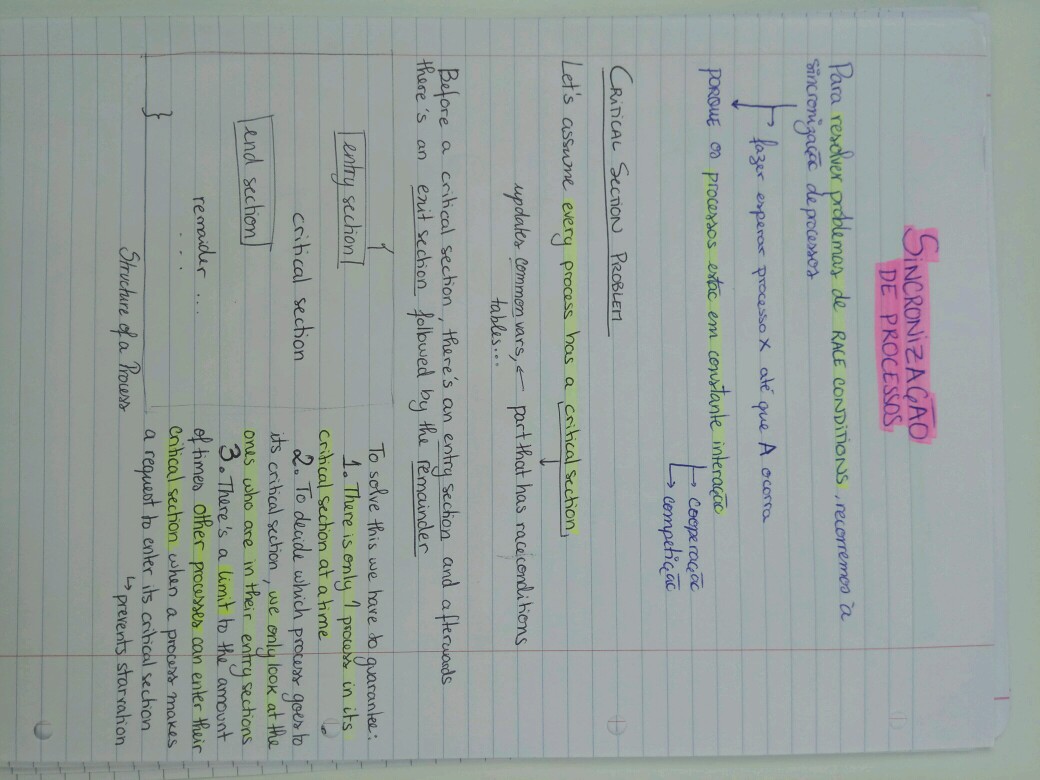 SINCRONIZAÇÃO
DE PROCESSOS
Para resolver problemas de RACE CONDITIONS, recorremos à
sincronização de processos
fazer esperar processo X até que A ocorra
PORQUE os processos estão em constante interação
→ cooperação
→ competição
CRITICAL SECTION PROBLEM
Let's assume every process has a critical section,
updates common vars, ← part that has race conditions
tables...
Before a critical section, there's an entry section and afterwards
there's an exit section followed by the remainder
{
entry section
critical section
end section
remaider ...
...
}
Structure of a Process
To solve this we have to guarantee:
1. There is only 1 process in its
critical section at a time
2. To decide which process goes to
its critical section, we only look at the
ones who are in their entry sections
3. There's a limit to the amount
of times other processes can enter their
critical section when a process makes
a request to enter its critical section
↳ prevents starvation